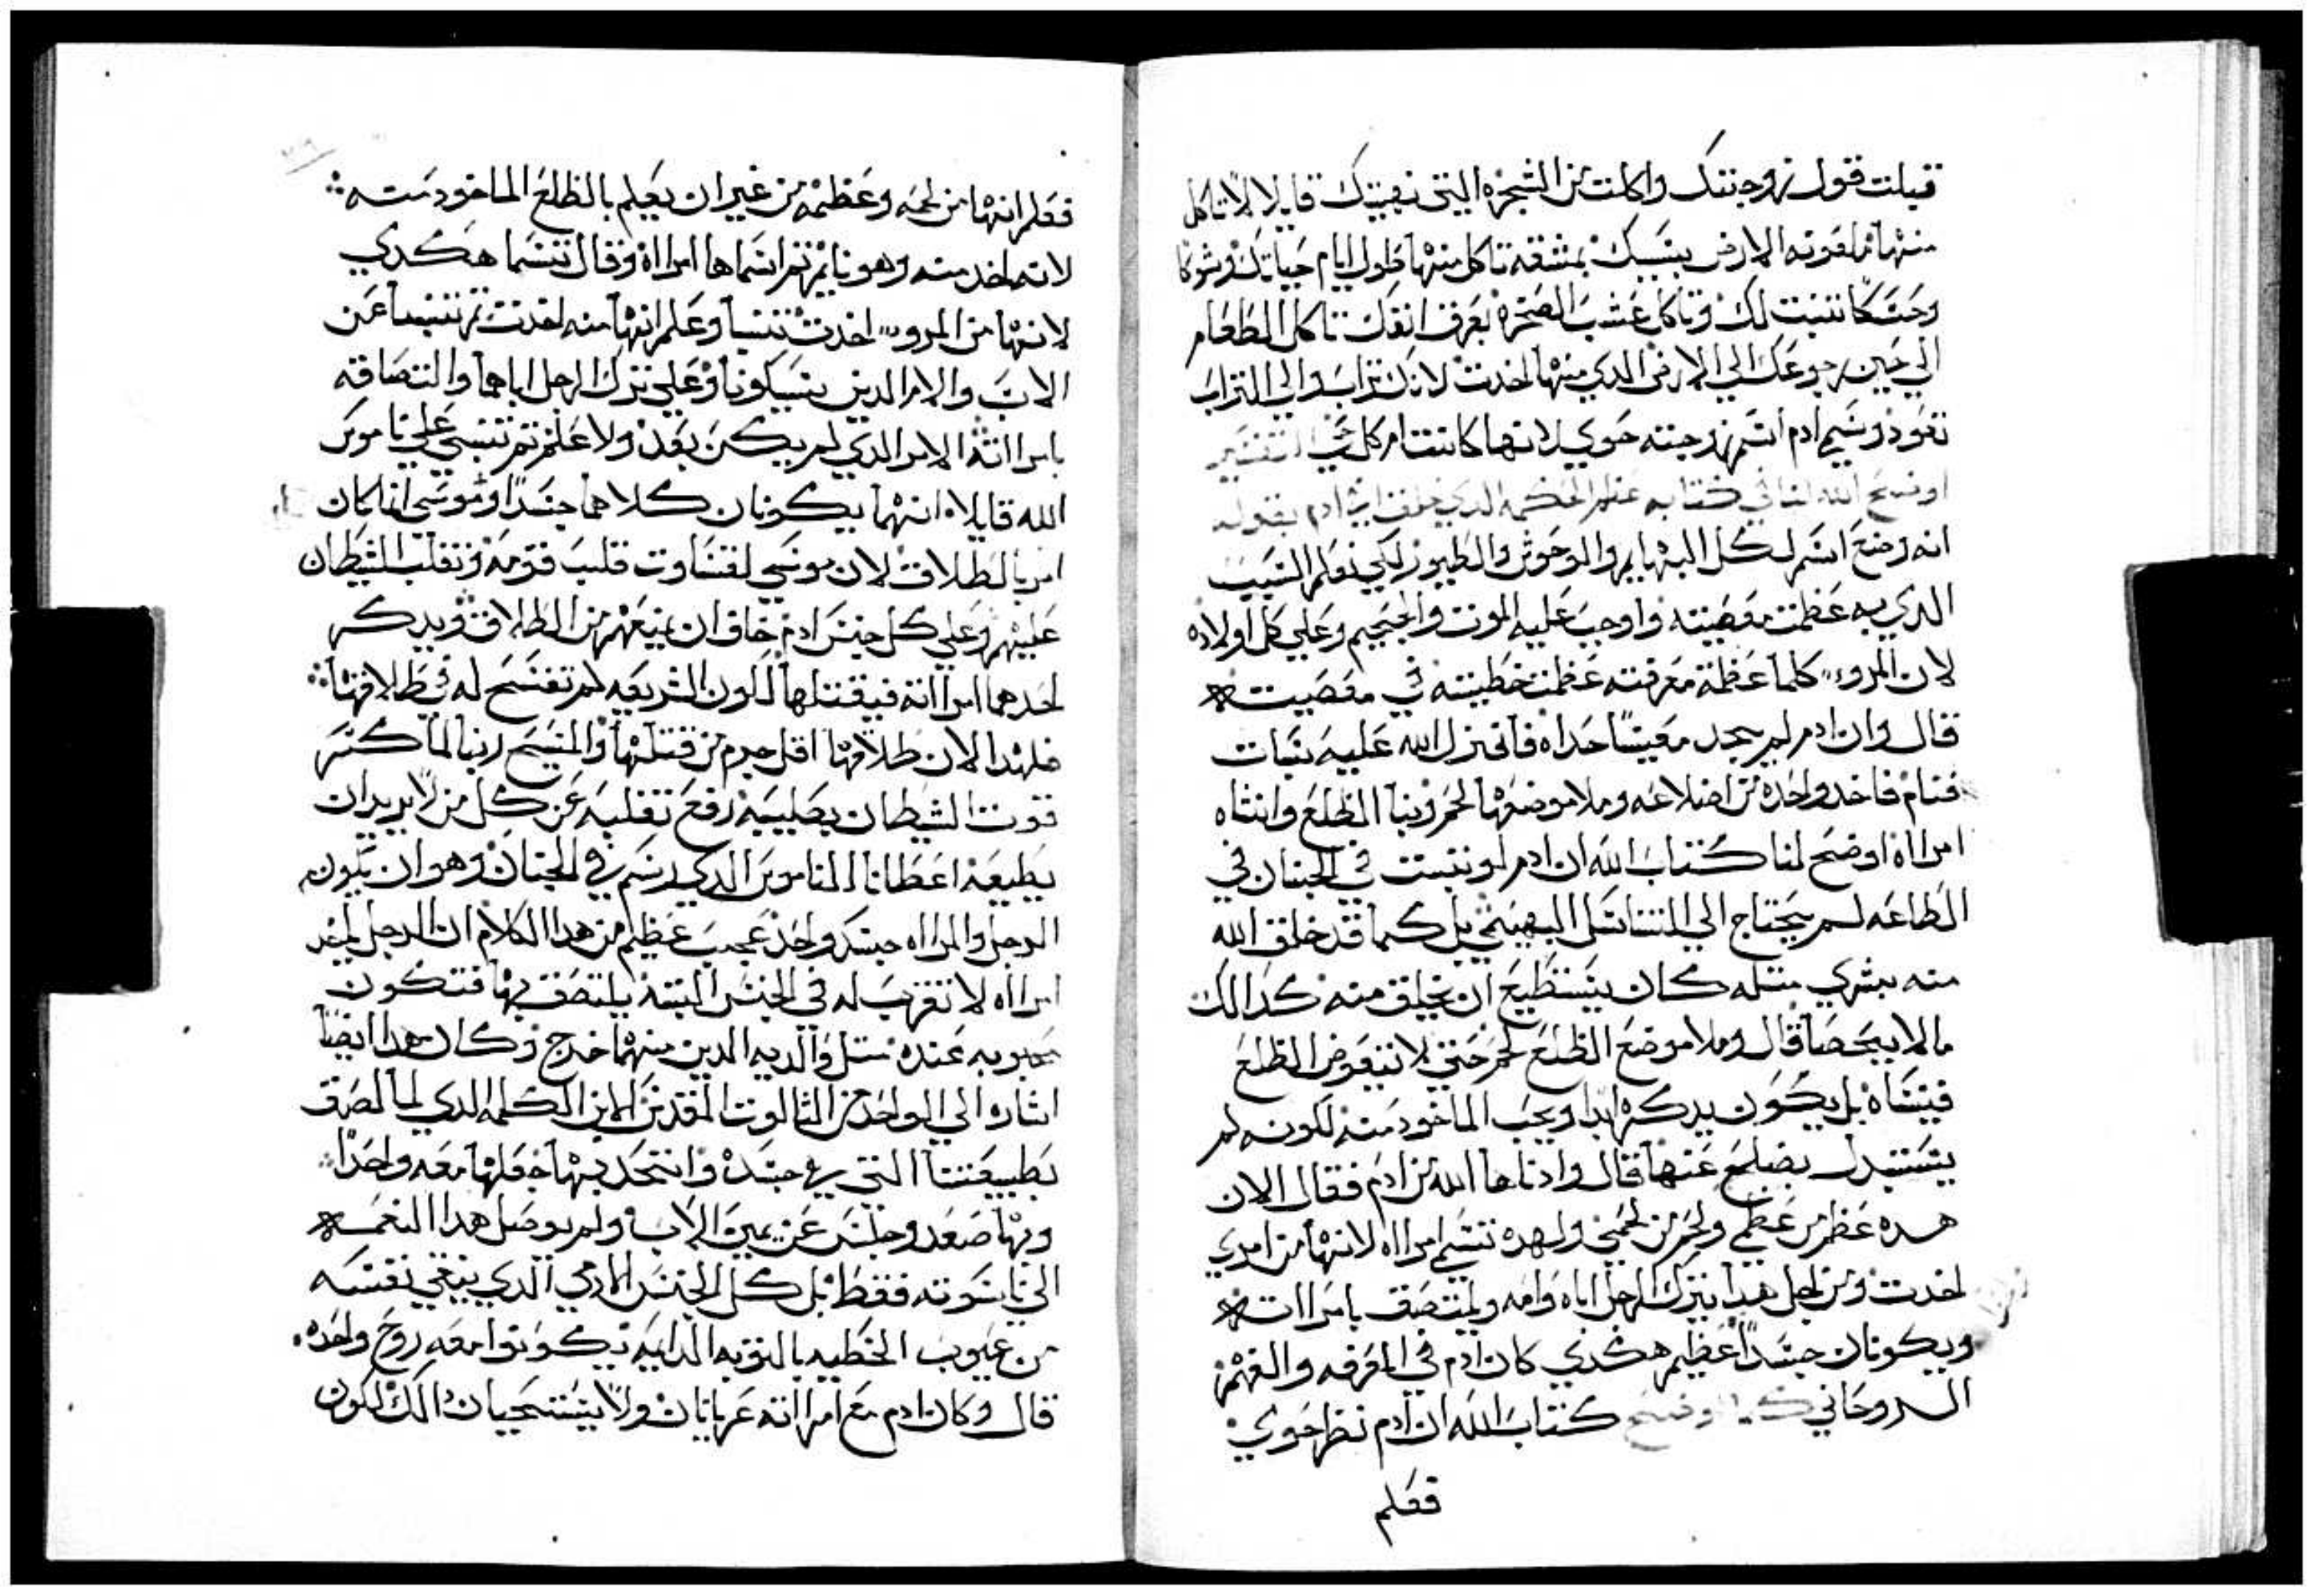 قبلت قول زوجتك واكلت من الشجره التي نهيتك قايلا لا تاكل
منها ملعونه الارض بسببك بمشقه تاكل منها طول ايام حياتك وشوكا
وحسكا تنبت لك وتاكل عشب الصحره بعرق انفك تاكل الطعام
الي حين رجوعك الي الارض الدي منها اخدت لانك تراب والي التراب
تعود وسمي ادم اسم زوجته حوي لانها كانت ام كل حي التفسير
اوضح الله لنا في كتابه عظم الحكمه الدي خلق ادم بقوله
انه وضع اسم لكل البهايم والوحوش والطيور لكي نعلم السبب
الدي به عظمت معصيته واوجب عليه الموت والجحيم وعلي كل اولاده
لان المروء كلما عظمة معرفته عظمت خطيته في معصيته
قال وان ادم لم يجد معينا حداه فانزل الله عليه سبات
فنام فاخد واحده من اضلاعه وملا موضعها لحم وبنا الظلع وانشاه
امرااه اوضح لنا كتاب الله ان ادم لو تبت في الجنان في
الطاعه لم يحتاج الي التناسل البهيمي بل كما قد خلق الله
منه بشري مثله كان يستطيع ان يخلق منه كدالك
مالا يحصا قال وملا موضع الظلع لحم حتي لا يتعوض الظلع
فينساه بل يكون يدكره ابدا ويحب الماخود منه لكونه لم
يستبدل بضلع عنها قال وادناها الله من ادم فقال الان
هده عظم من عظمي ولحم من لحمي ولهده تسم امرااه لانها من امري
اخدت ومن اجل هدا يترك الرجل اباه وامه ويلتصق بامرااته
ويكونان جسدا عظيم هكدي كان ادم في المعرفه والفهم
الروحاني كما اوضح كتاب الله ان ادم نظر حوي
فعلم
فعلم انها من لحمه وعظمه من غير ان يعلم بالظلع الماخود منه
لانه اخد منه وهو نايم تم اسماها امرااه وقال تتسما هكدي
لانها من المروء اخدت تنبأ وعلم انها منه اخدت تم تنبأ عن
الاب والام الدين سيكونا وعلي ترك الرجل اياهما والتصاقه
بامرااته الامر الدي لم يكن بعد ولا علم تم تنبي علي ناموس
الله قايلا انهما يكونان كلاهما جسدا وموسي انما كان
امر بالطلاق لان موسي لقساوت قلب قومه وتغلب الشيطان
عليهم وعلي كل جنس ادم خاف ان يمنعهم من الطلاق ويدكر
احدهما امرااته فيقتلها لكون الشريعه لم تفسح له في طلاقها
فلهدا الان طلاقها اقل جرم من قتلها والمسيح ربنا لما كسر
قوت الشيطان بصليبه رفع تغلبه عن كل من لا يريد ان
يطيعه اعطانا الناموس الدي رسم في الجنان وهو ان يكون
الرجل والمرااه جسد واحد عجب عظيم من هدا الكلام ان الرجل ياخد
امرااه لا تقرب له في الجنس البته يلتصق بها فتكون
محبوبه عنده مثل والديه الدين منهما خرج وكان هدا ايضا
اشاره الي الواحد من الثالوت المقدس الابن الكلمه الدي لما لصق
بطبيعتنا التي هي جسده واتحد بها جعلها معه واحدا
وبها صعد وجلس عن يمين الاب ولم يوصل هدا النعمه
الي ناسوته فقط بل كل الجنس الادمي الدي ينقي نفسه
من عيوب الخطيه بالتوبه الدايمه يكونوا معه روح واحده
قال وكان ادم مع امرااته عريانان ولا يستحيان دالك لكون